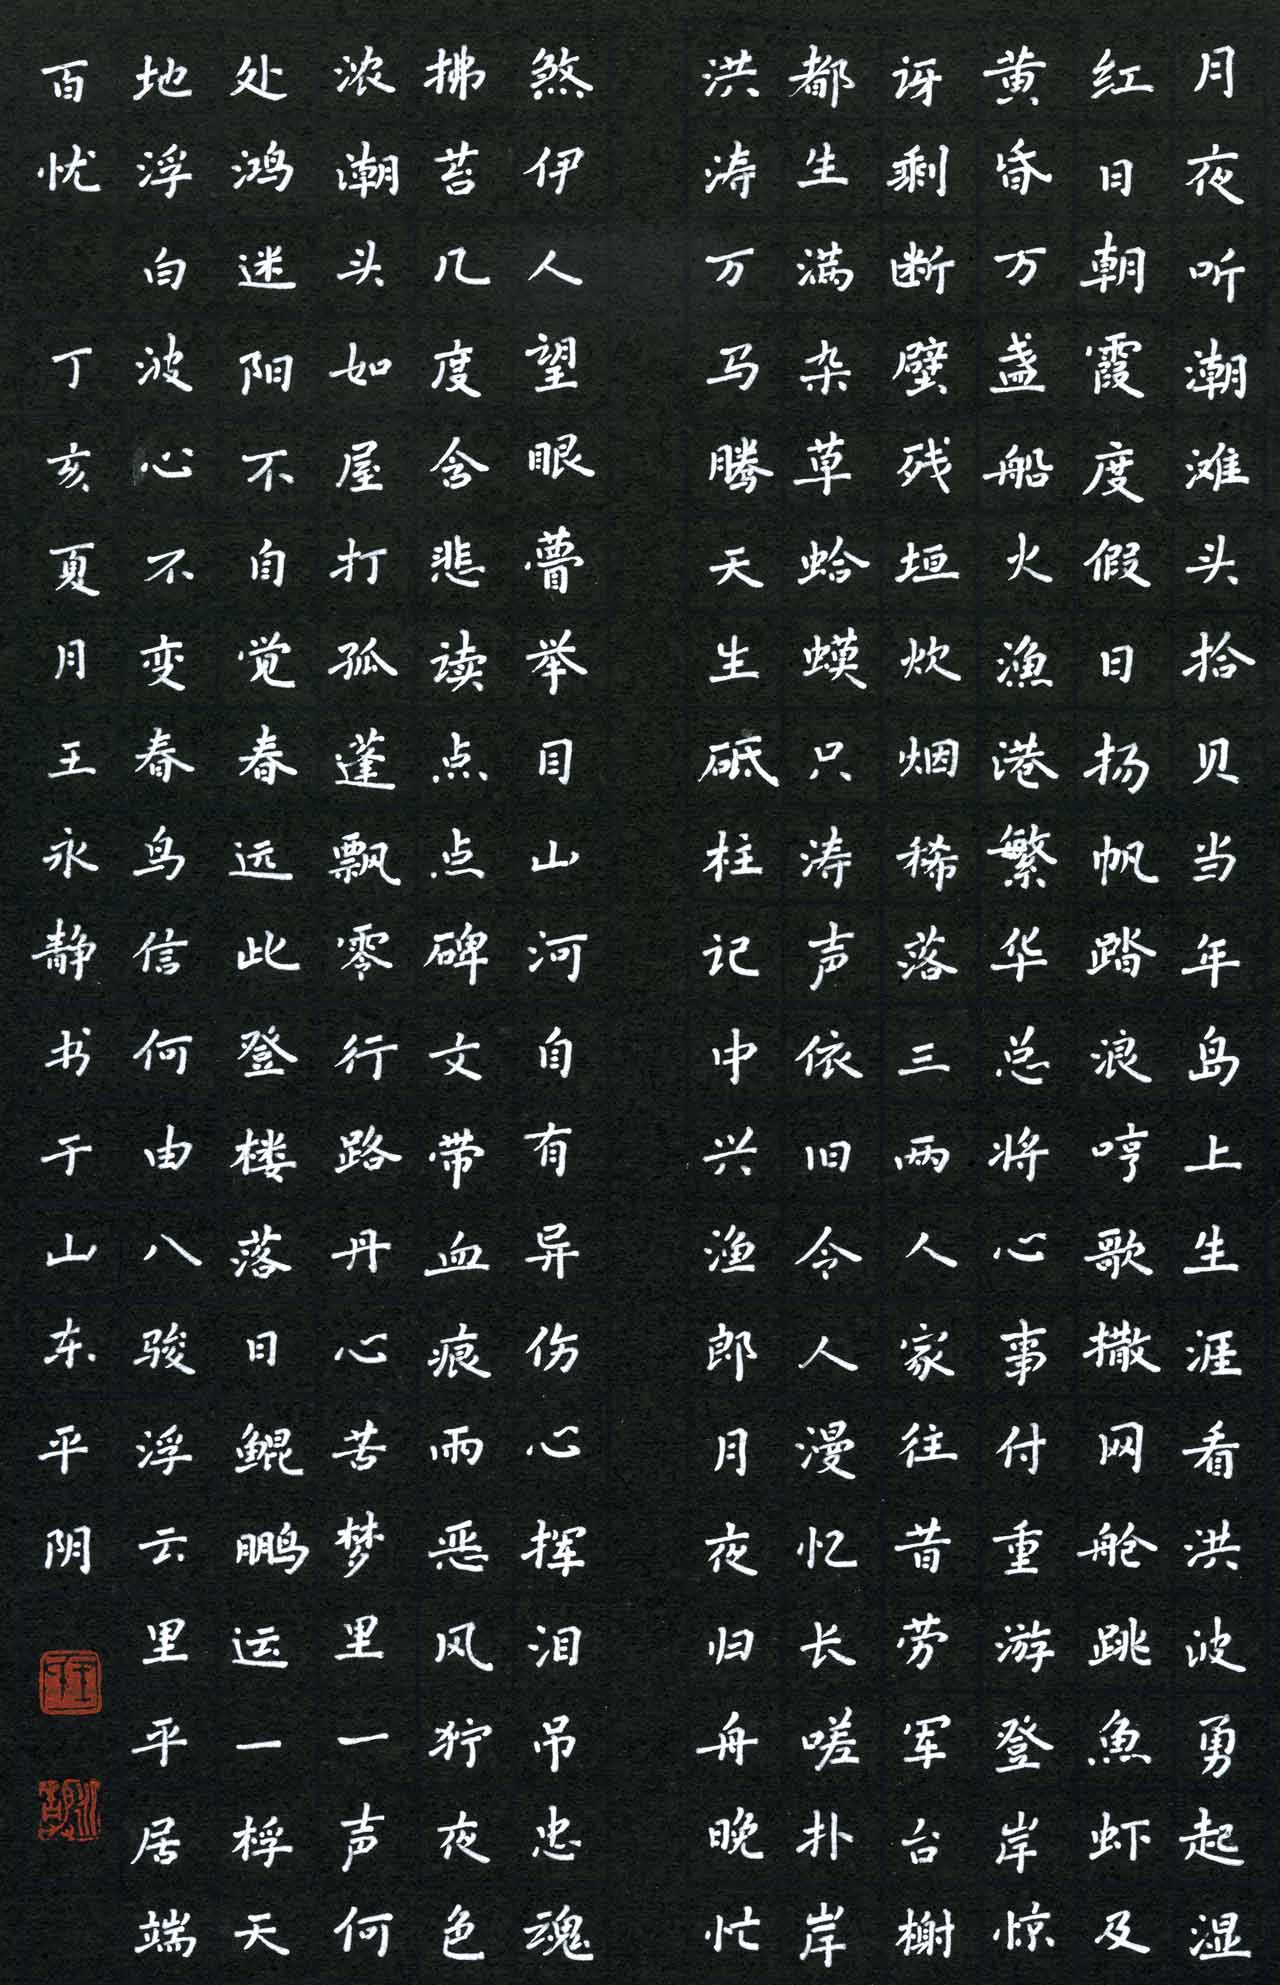 月夜听潮滩头拾贝当年岛上生涯看洪波勇起湿
红日朝霞度假日扬帆踏浪哼歌撒网舱跳鱼虾及
黄昏万盏船火渔港繁华总将心事付重游登岸惊
讶剩断壁残垣炊烟稀落三两人家往昔劳军台榭
都生满杂草蛤蟆只涛声依旧令人漫忆长嗟扑岸
洪涛万马腾天生砥柱记中兴渔郎月夜归舟晚忙
煞伊人望眼瞢举目山河自有异伤心挥泪吊忠魂
拂苔几度含悲读点点碑文带血痕雨恶风狞夜色
浓潮头如屋打孤蓬飘零行路丹心苦梦里一声何
处鸿迷阳不自觉春远此登楼落日鲲鹏运一桴天
地浮白波心不变春鸟信何由八骏浮云里平居端
百忧 丁亥夏月王永静书于山东平阴